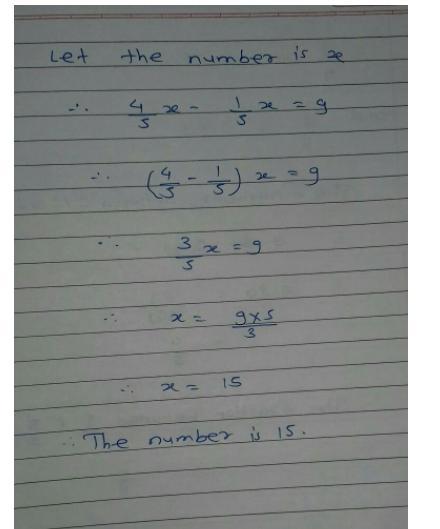 Let the number is x
∴ 4/5 x - 1/5 x = 9
∴ (4/5 - 1/5) x = 9
∴ 3/5 x = 9
∴ x = 9×5/3
∴ x = 15
∴ The number is 15.